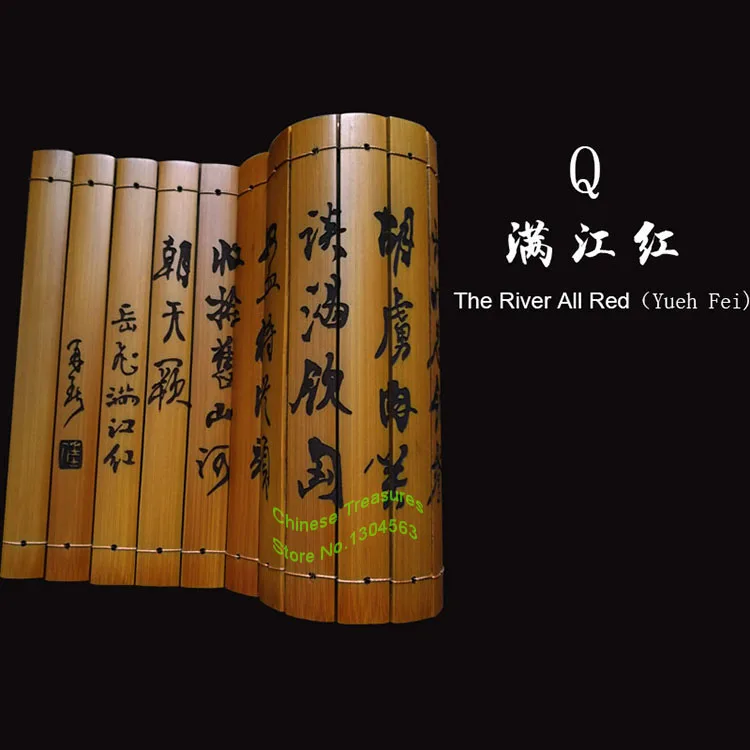 Q
满江红
The River All Red (Yueh Fei)
胡虜肉笑
谈渴饮匈
奴血待从頭
收拾舊山河
朝天闕
岳飞满江红
Chinese Treasures
Store No.1304563